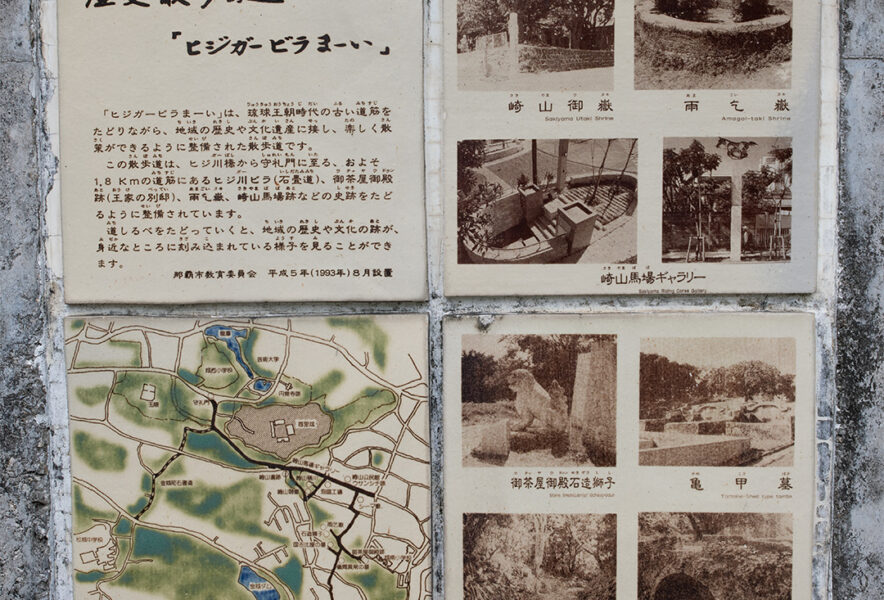 歴史散歩道
「ヒジガービラまーい」
「ヒジガービラまーい」は、琉球王朝時代の古い道筋を
たどりながら、地域の歴史や文化遺産に接し、楽しく散
策ができるように整備された散歩道です。
この散歩道は、ヒジ川橋から守礼門に至る、およそ
1.8 Kmの道筋にあるヒジ川ビラ(石畳道)、御茶屋御殿
跡(王家の別邸)、雨乞嶽、崎山馬場跡などの史跡をたど
るように整備されています。
道しるべをたどっていくと、地域の歴史や文化の跡が、
身近なところに刻み込まれている様子を見ることができ
ます。
那覇市教育委員会 平成5年(1993年)8月設置
崎山御嶽
Sakiyama Utaki Shrine
雨乞嶽
Amagoi-taki Shrine
崎山馬場ギャラリー
御茶屋御殿石造獅子
亀甲墓
芸術大学
城西小学校
円覚寺跡
守礼門
玉陵
首里城
崎山馬場ギャラリー
崎山御嶽
金城町石畳道
雨乞嶽
松城中学校
金城ダム